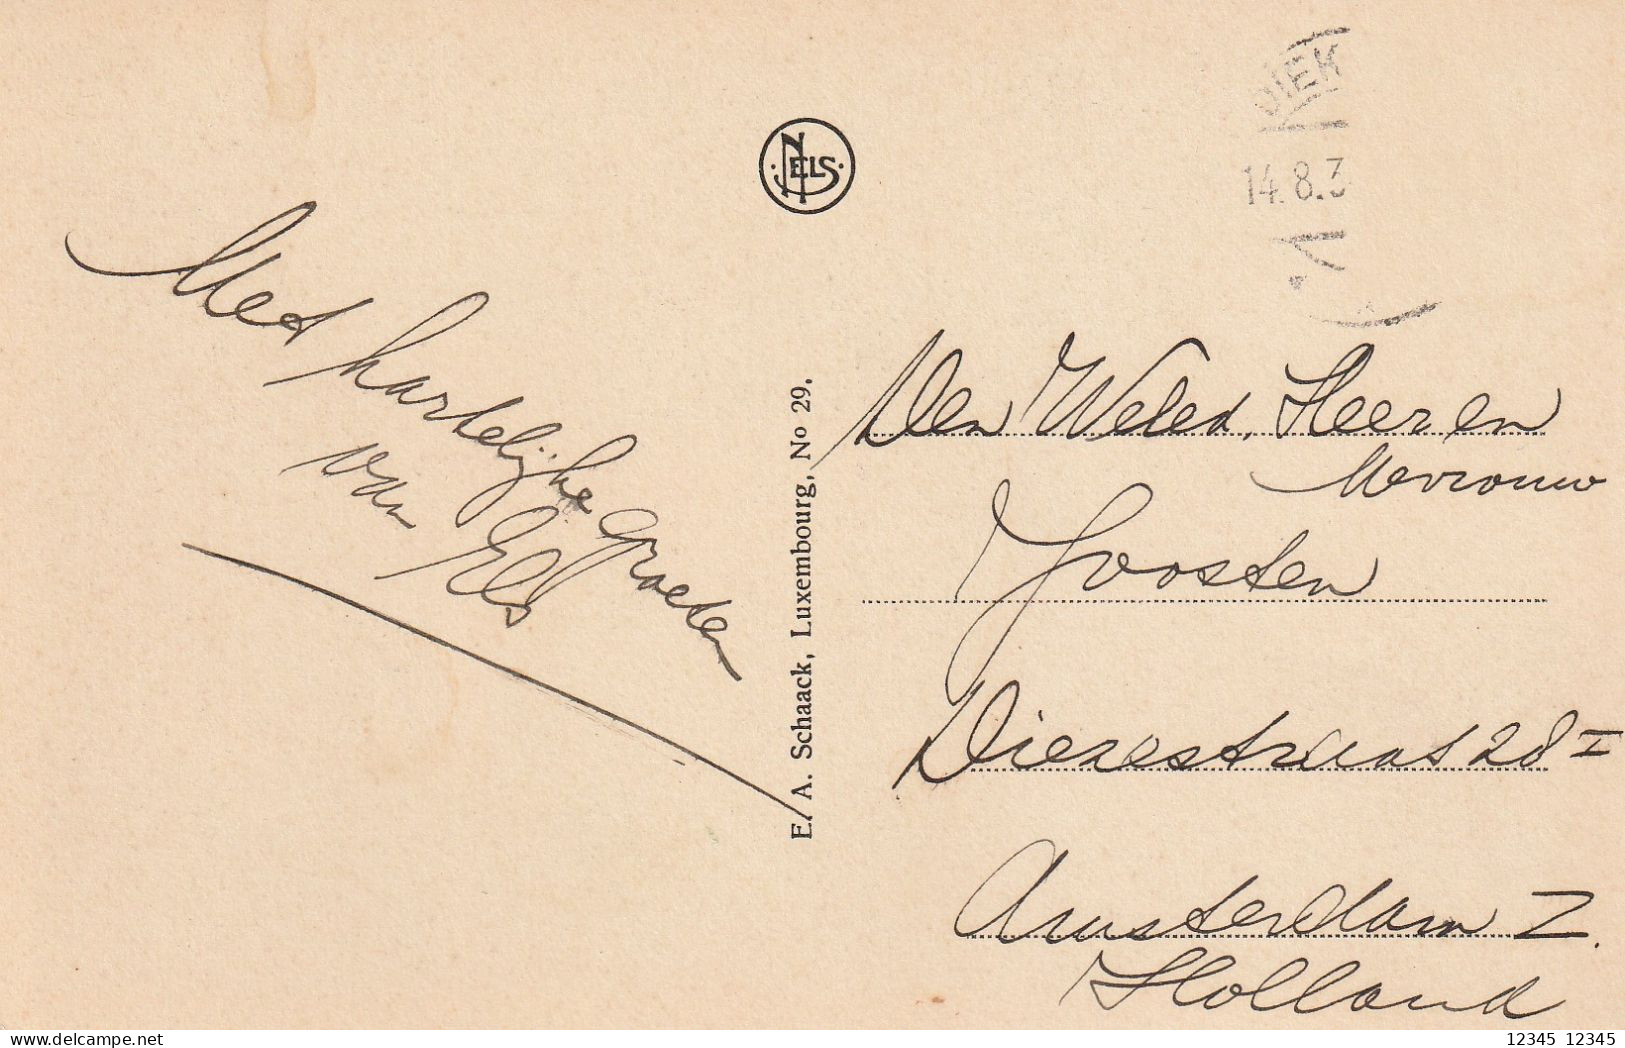 DIEK
14.8.3
NELS
Met hartelijke Groeten
van Els
E. A. Schaack, Luxembourg, No 29.
Den Weled. Heer en
Mevrouw
Joosten
Diezestraat 28 I
Amsterdam Z.
Holland
12345 12345